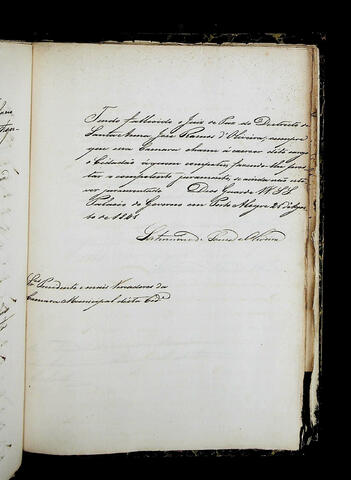 Tendo fallecido o Juiz de Paz do Destricto de
Santa Anna José Ramos d'Oliveira, cumpre
que essa Camara chame á exercer este cargo
o Cidadão á quem competir, fazendo-lhe pres-
tar o competente juramento, se ainda não esti-
ver juramentado. Deos Guarde a VV. SS.
Palacio do Governo em Porto Alegre 21 d'Agos-
to de 1841
Snr.es Presidente e mais Vereadores da
Camara Municipal desta Cid.e